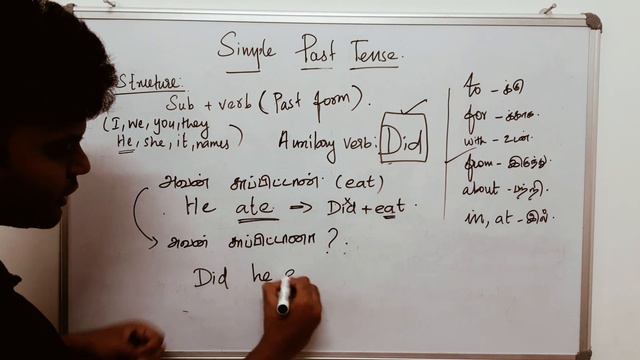 Simple Past Tense.
Structure:
Sub + verb (Past form).
(I, we, you, they
He, she, it, names)
Auxiliary verb: Did
அவன் சாப்பிட்டான். (eat)
He ate → Did + eat.
அவன் சாப்பிட்டானா?
Did he e
to - க்கு
for - க்காக
with - உடன்
from - இருந்து
about - பற்றி
in, at - இல்